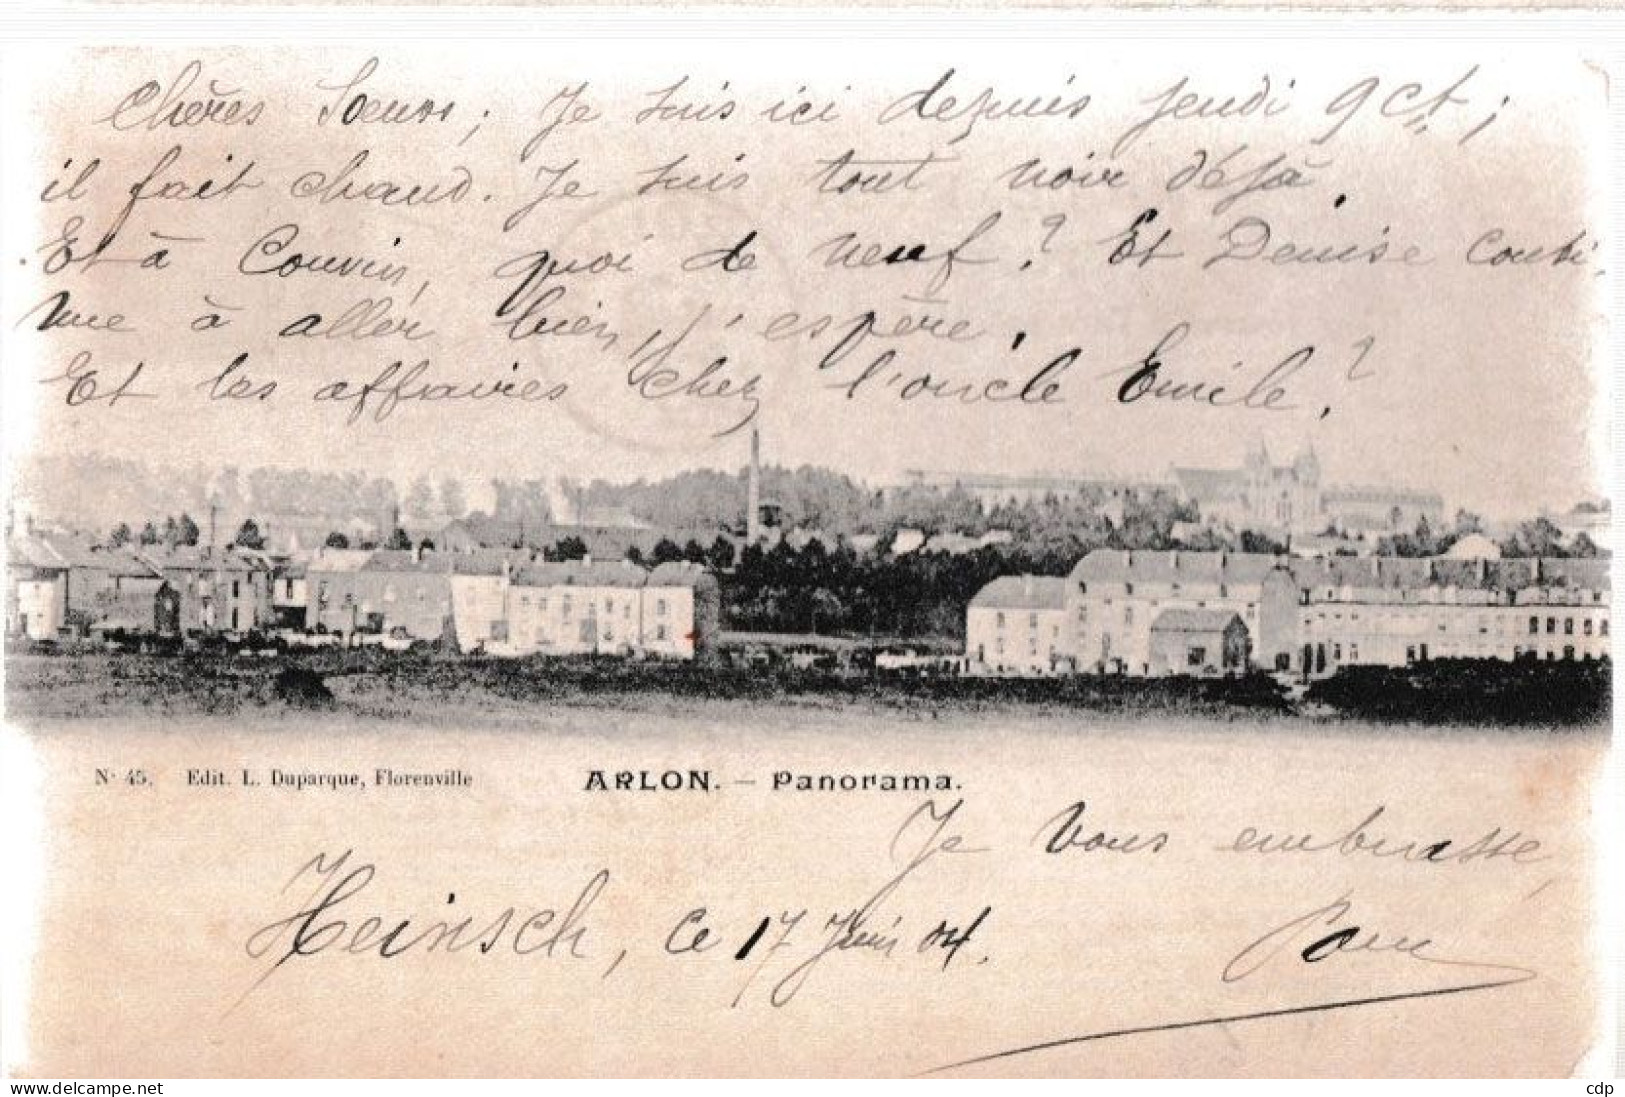 Chères Soeurs; Je suis ici depuis jeudi 9 ct;
il fait chaud. Je suis tout noir déjà.
Et à Couvin, quoi de neuf? Et Denise conti-
nue à aller bien, j'espère.
Et les affaires chez l'oncle Emile?
N° 45. Edit. L. Duparque, Florenville
ARLON. — Panorama.
Je vous embrasse,
Heinsch, ce 17 Juin 04.
delcampe.net
cdp